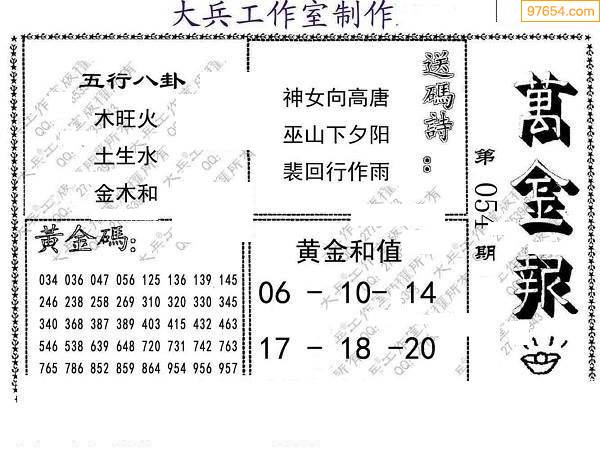 大兵工作室制作
97654.com
萬金報
第 054 期
五行八卦
木旺火
土生水
金木和
送碼詩：
神女向高唐
巫山下夕阳
裴回行作雨
黃金碼：
034 036 047 056 125 136 139 145
246 238 258 269 310 320 330 345
340 368 387 389 403 415 432 463
546 538 639 648 720 731 742 763
765 786 852 859 864 954 956 957
黄金和值
06 - 10- 14
17 - 18 -20